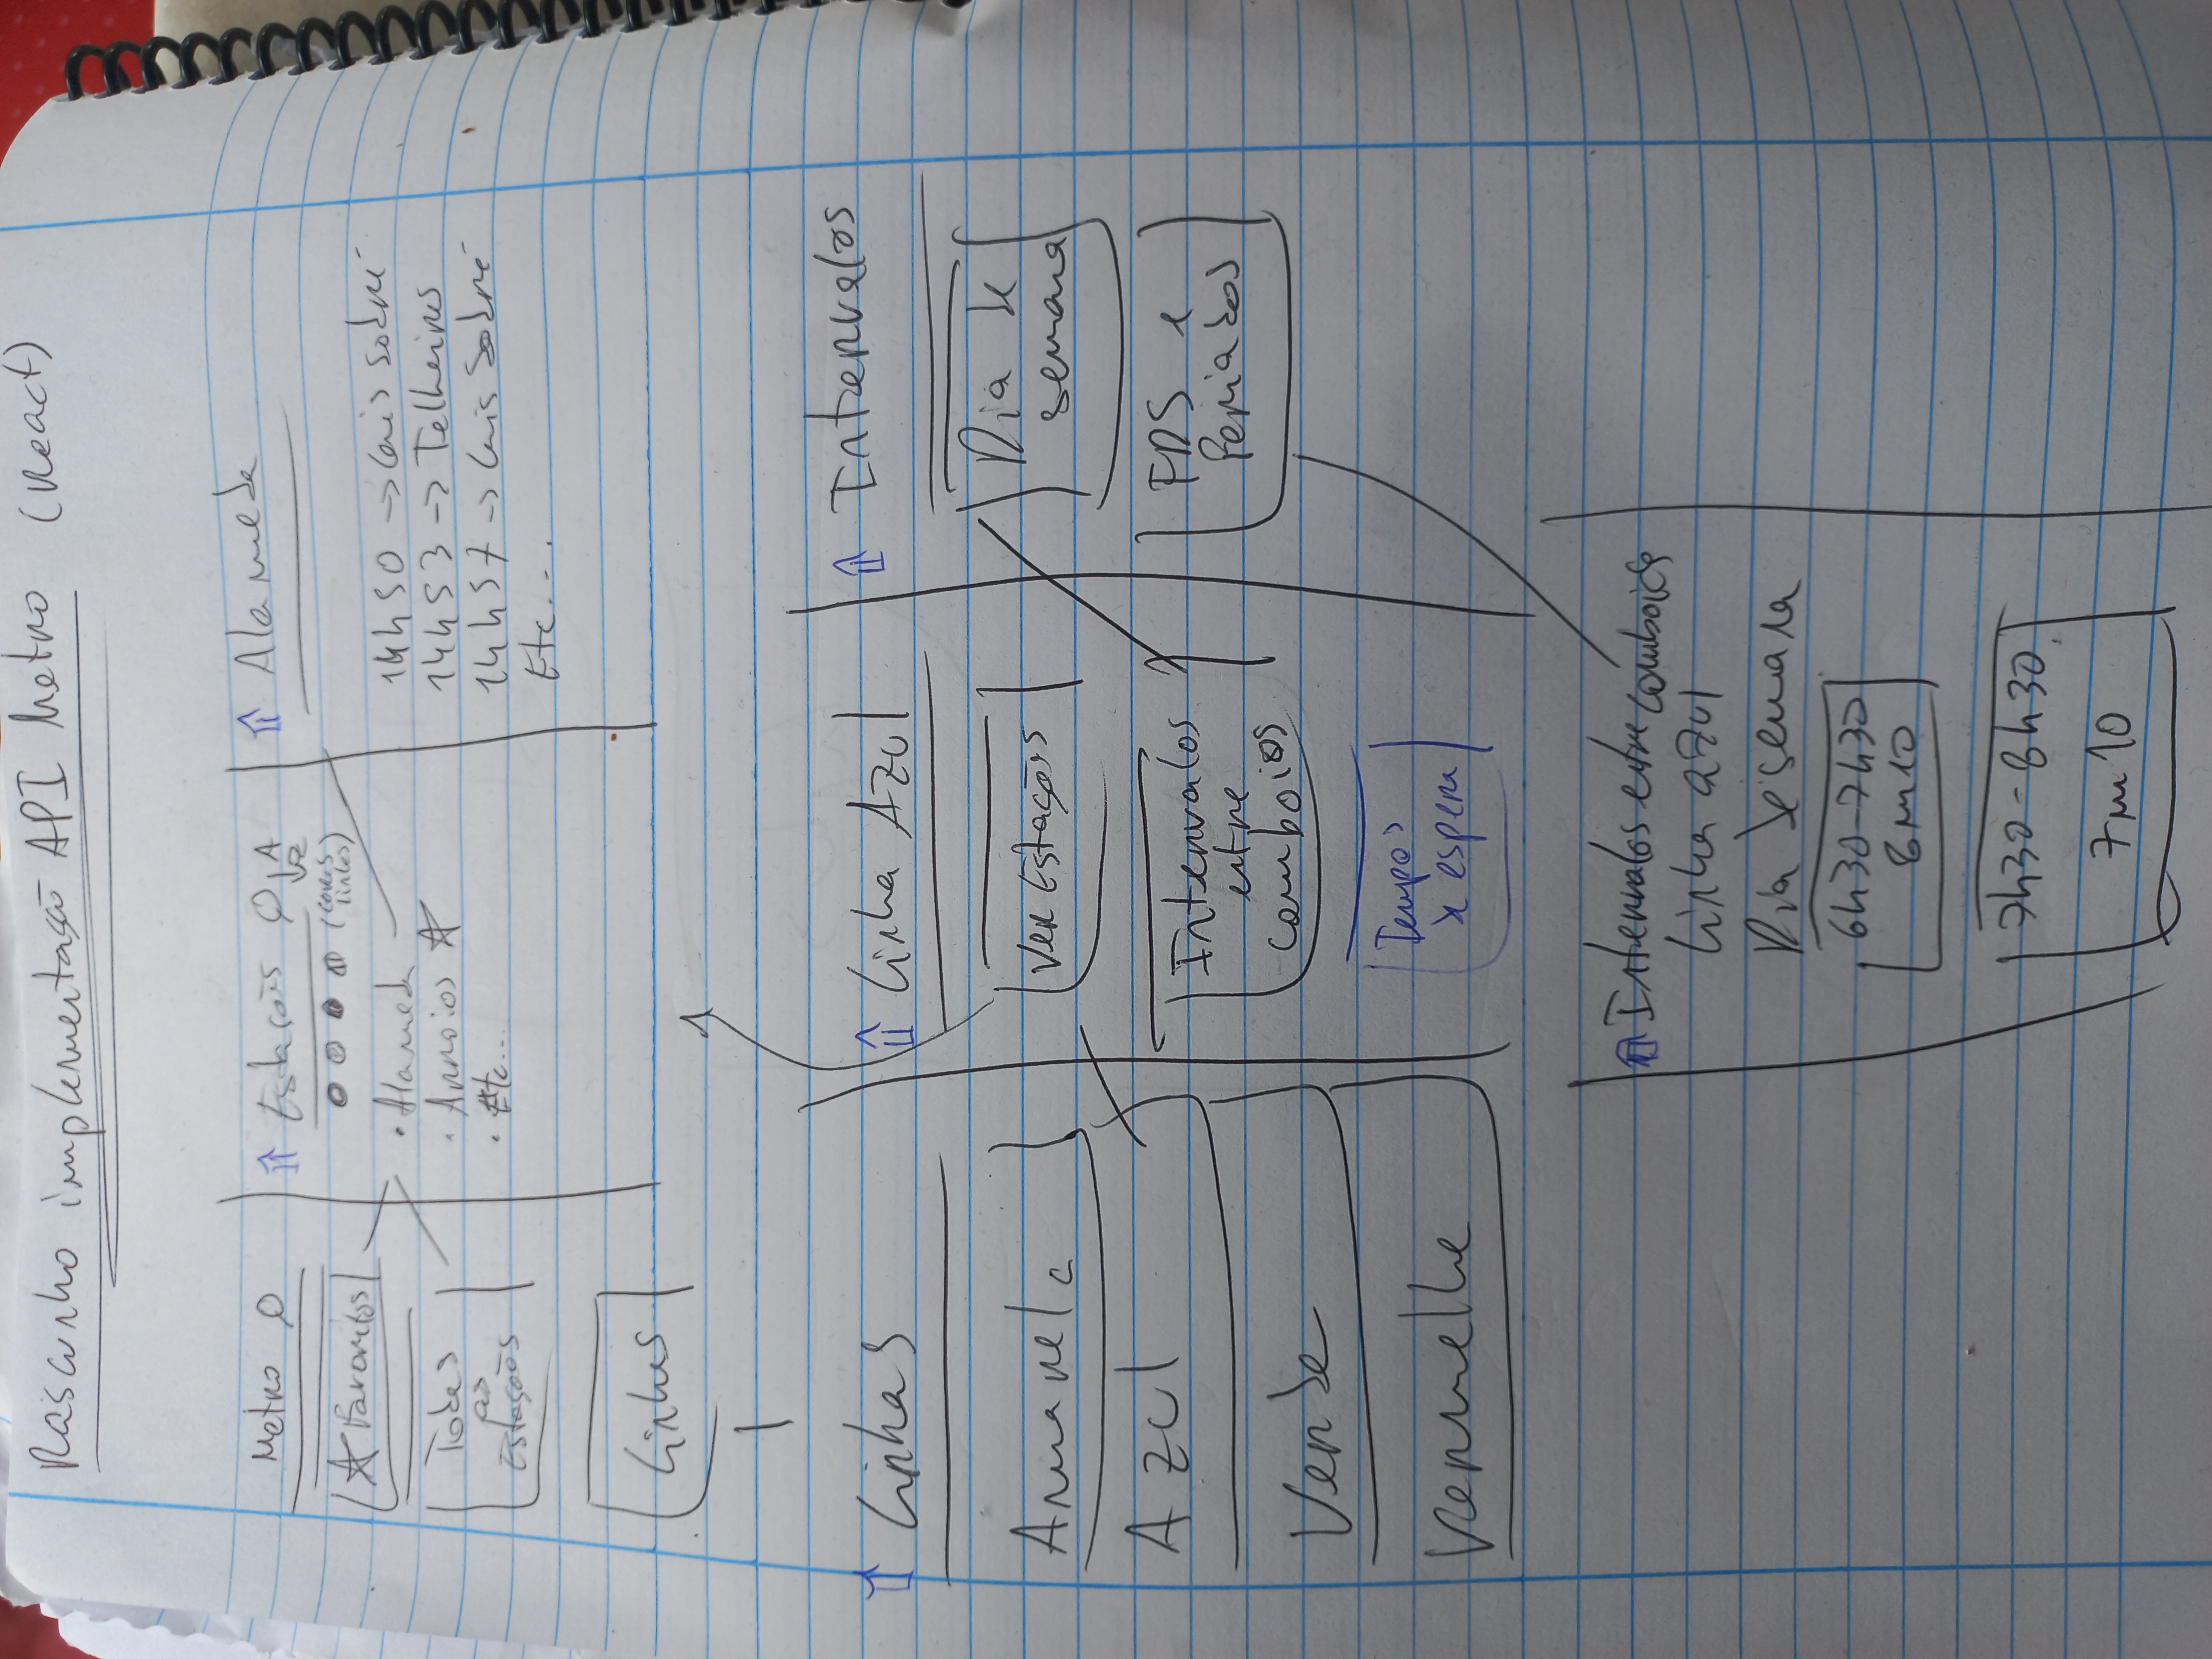 Rascunho implementação API Metro (React)
Metro
Favoritos
Todas
as
Estações
Linhas
Estações A
Z
(cores
linhas)
• Alameda
• Arroios
• Etc...
Alameda
14h50 -> Cais Sodré
14h53 -> Telheiras
14h57 -> Cais Sodré
Etc...
Linhas
Amarela
Azul
Verde
Vermelha
Linha Azul
Ver Estações
Intervalos
entre
comboios
Tempos
de espera
Intervalos
Dia de
semana
FDS e
Feriados
Intervalos entre comboios
Linha azul
Dia de semana
6h30-7h30
8m10
7h30-8h30
7m10